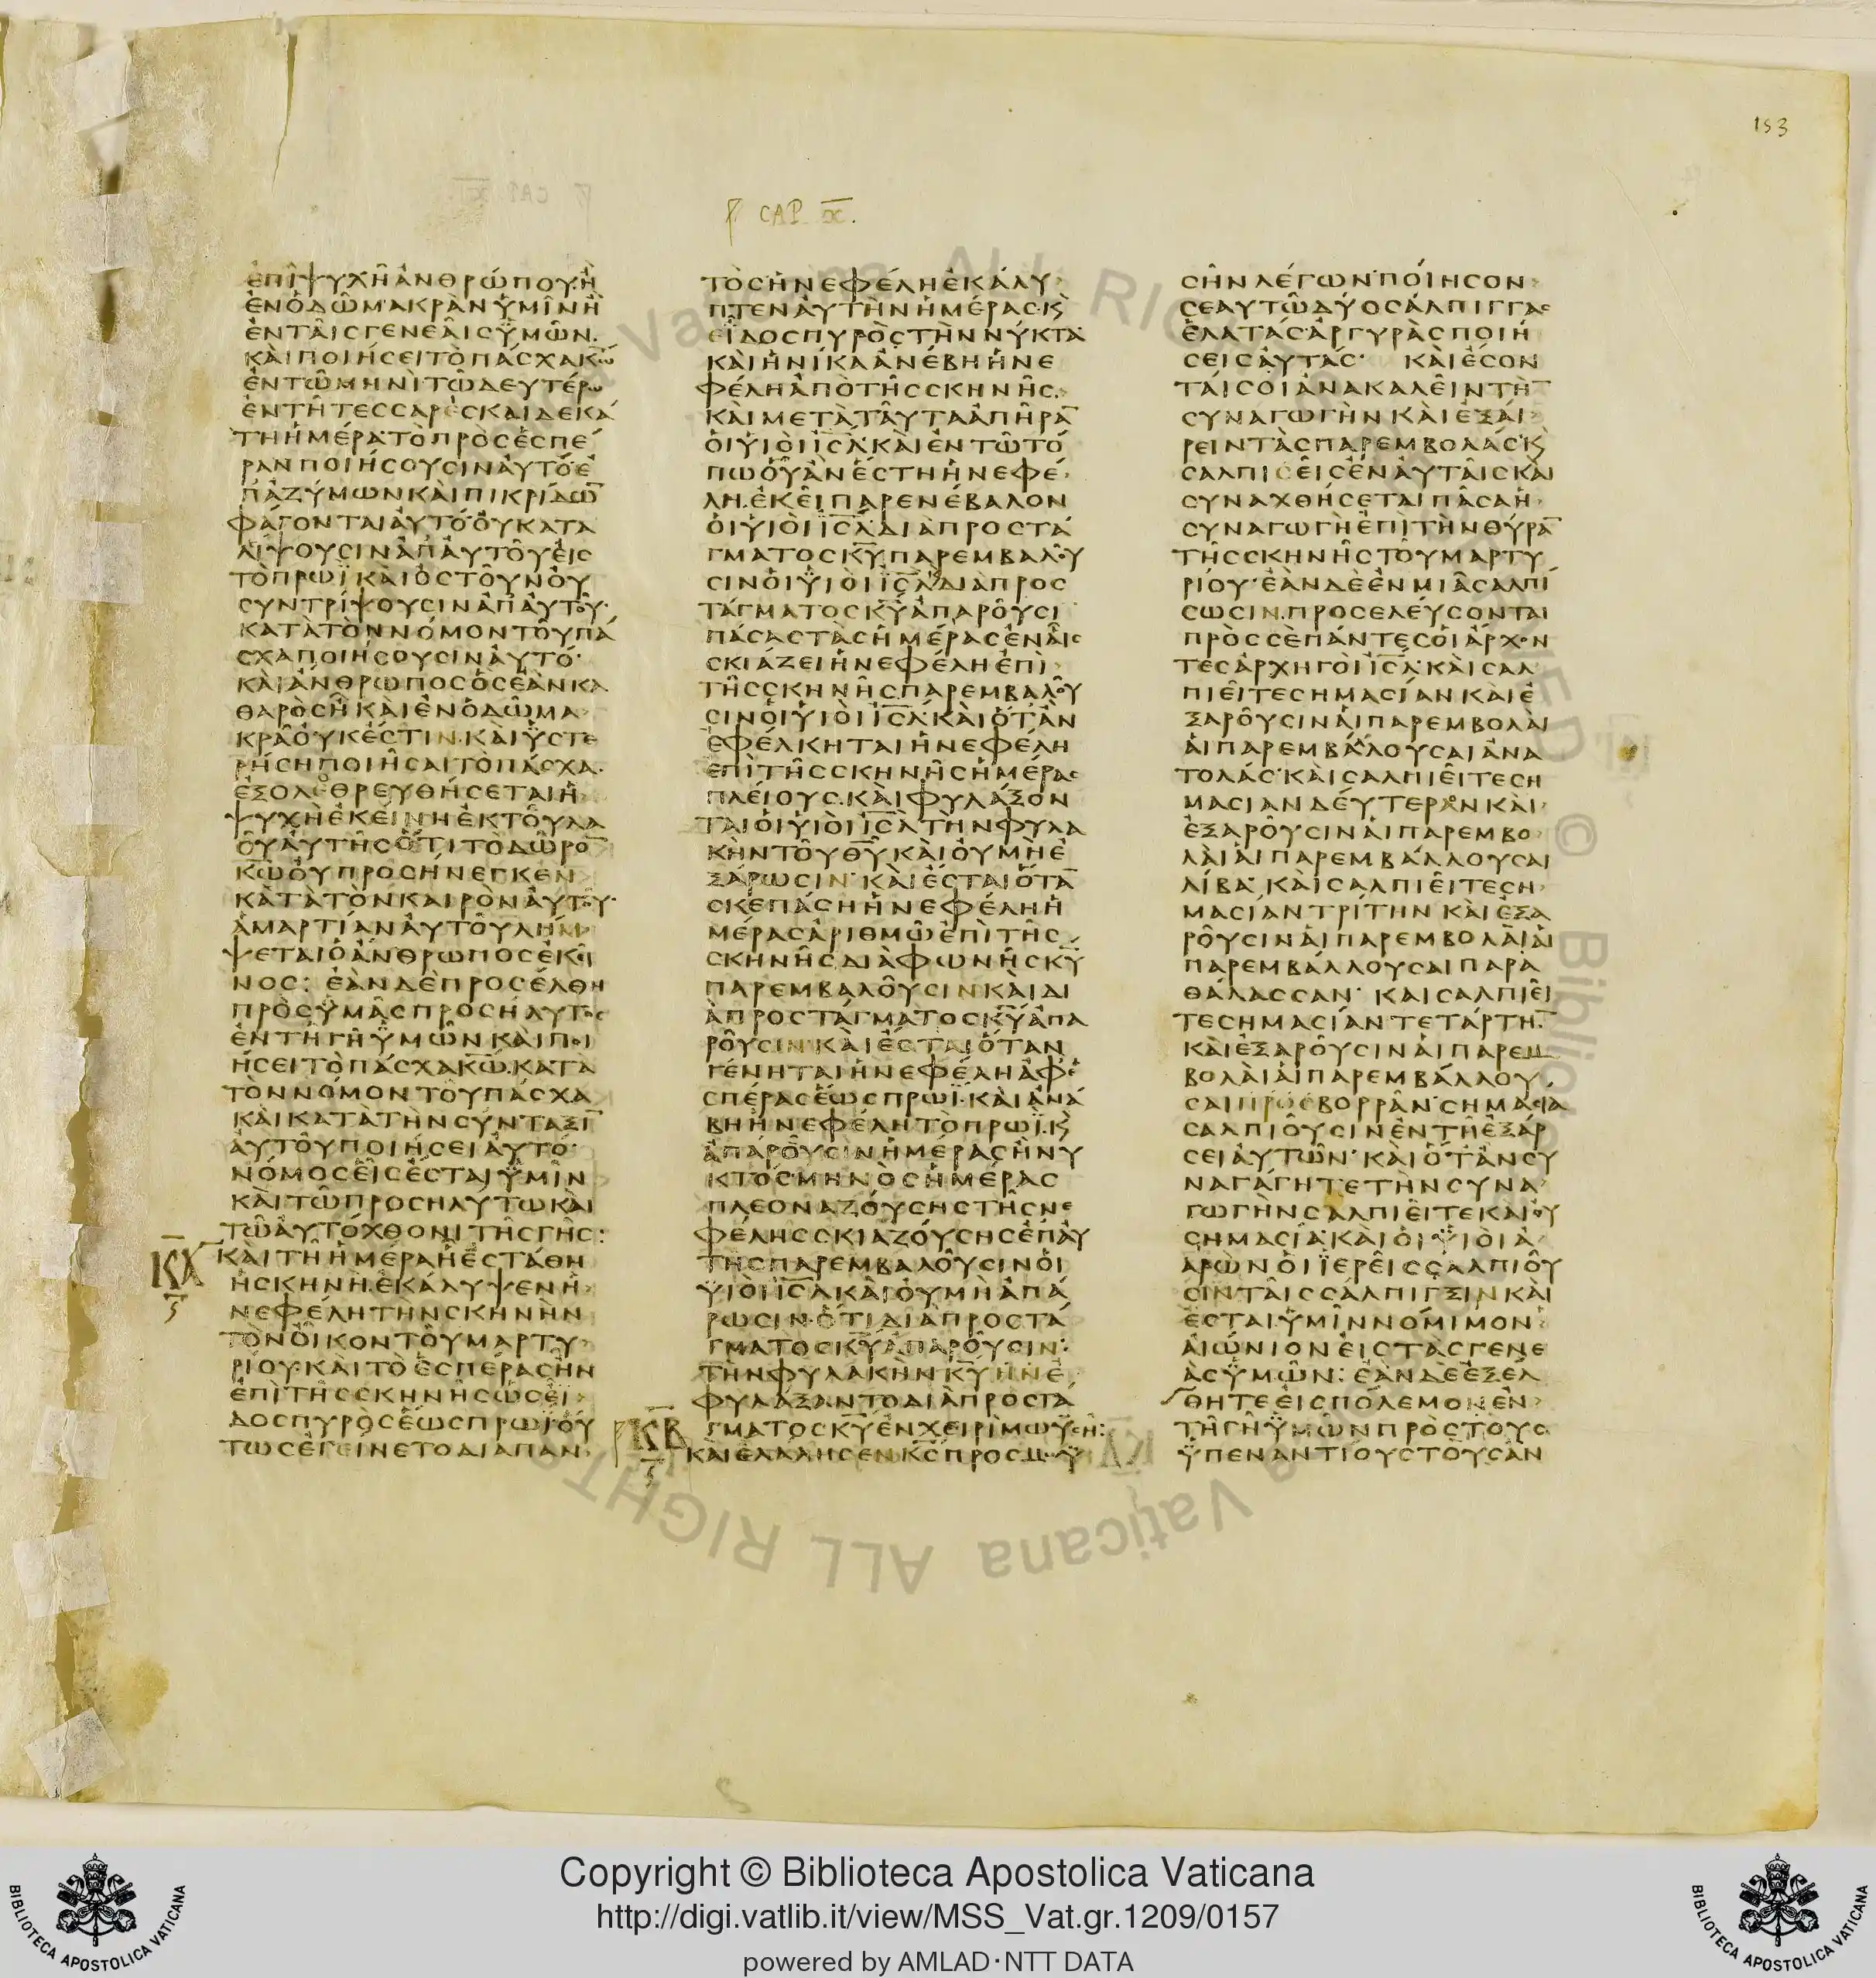 153
CAP. X.
ἐπὶ ψυχῆ ἀνθρώπου· ἢ
ἐν ὁδῶ μακρὰν ὑμῖν ἢ
ἐν ταῖς γενεαῖς ὑμῶν.
καὶ ποιήσει τὸ πάσχα κ̅ω̅
ἐν τῶ μηνὶ τῶ δευτέρω
ἐν τῆ τεσσαρεσκαιδεκά
τη ἡμέρα· τὸ πρὸς ἑσπέ
ραν ποιήσουσιν αὐτό· ἐ
π᾽ ἀζύμων καὶ πικρίδω̅
φάγονται αὐτό· οὐ κατα
λίψουσιν ἀπ᾽ αὐτοῦ εἰς
τὸ πρωῒ καὶ ὀστοῦν οὐ
συντρίψουσιν ἀπ᾽ αὐτοῦ·
κατὰ τὸν νόμον τοῦ πά
σχα ποιήσουσιν αὐτό·
καὶ ἄνθρωπος ὃς ἐὰν κα
θαρὸς ῆ καὶ ἐν ὁδῶ μα
κρᾶ οὐκ ἔστιν· καὶ ὑστε
ρήσῃ ποιῆσαι τὸ πάσχα·
ἐξολεθρευθήσεται ἡ
ψυχὴ ἐκείνη ἐκ τοῦ λα
οῦ αὐτῆς ὅτι τὸ δῶρο̅
κ̅ω̅ οὐ προσήνεγκεν
κατὰ τὸν καιρὸν αὐτοῦ·
ἁμαρτίαν αὐτοῦ λήμ
ψεται ὁ ἄνθρωπος ἐκεῖ
νος: ἐὰν δὲ προσέλθη
πρὸς ὑμᾶς προσήλυτος
ἐν τῆ γῆ ὑμῶν καὶ ποι
ήσει τὸ πάσχα κ̅ω̅· κατὰ
τὸν νόμον τοῦ πάσχα
καὶ κατὰ τὴν σύνταξι̅
αὐτοῦ ποιήσει αὐτό·
νόμος εἷς ἔσται ὑμῖν
καὶ τῶ προσηλύτω καὶ
τῶ αὐτόχθονι τῆς γῆς:
ΚΑ καὶ τῆ ἡμέρα ἧ ἐστάθη
ἡ σκηνὴ. ἐκάλυψεν ἡ
νεφέλη τὴν σκηνὴν
τὸν οἶκον τοῦ μαρτυ
ρίου· καὶ τὸ ἑσπέρας ἦν
ἐπὶ τῆς σκηνῆς ὡς εἶ
δος πυρὸς ἕως πρωΐ· οὕ
τως ἐγείνετο διαπαν
τὸς· ἡ νεφέλη ἐκάλυ
πτεν αὐτὴν ἡμέρας· κ̀
εἶδος πυρὸς τὴν νύκτα·
καὶ ἡνίκα ἀνέβη ἡ νε
φέλη ἀπὸ τῆς σκηνῆς.
καὶ μετὰ ταῦτα ἀπῆρα̅
οἱ υἱοὶ ι̅σ̅λ̅· καὶ ἐν τῶ τό
πω οὗ ἂν ἔστη ἡ νεφέ
λη. ἐκεῖ παρενέβαλον
οἱ υἱοὶ ι̅σ̅λ̅· διὰ προστά
γματος κ̅υ̅ παρεμβαλοῦ
σιν οἱ υἱοὶ ι̅σ̅λ̅ διὰ προς
τάγματος κ̅υ̅ ἀπαροῦσι
πάσας τὰς ἡμέρας ἐν αἷς
σκιάζει ἡ νεφέλη ἐπὶ
τῆς σκηνῆς παρεμβαλοῦ
σιν οἱ υἱοὶ ι̅σ̅λ̅· καὶ ὅταν
ἐφέλκηται ἡ νεφέλη
ἐπὶ τῆς σκηνῆς ἡμέρας
πλείους. καὶ φυλάξον
ται οἱ υἱοὶ ι̅σ̅λ̅ τὴν φυλα
κὴν τοῦ θ̅υ̅ καὶ οὐ μὴ ἐ
ξάρωσιν· καὶ ἔσται ὅτα̅
σκεπάση ἡ νεφέλη ἡ
μέρας ἀριθμῶ ἐπὶ τῆς
σκηνῆς διὰ φωνῆς κ̅υ̅
παρεμβαλοῦσιν καὶ δι
ὰ προστάγματος κ̅υ̅ ἀπα
ροῦσιν· καὶ ἔσται ὅταν
γένηται ἡ νεφέλη ἀφ᾽ ἑ
σπέρας ἕως πρωΐ· καὶ ἀνα
βῆ ἡ νεφέλη τὸ πρωΐ· κ̀
ἀπαροῦσιν ἡμέρας ἢ νυ
κτός· μηνὸς ἡμέρας
πλεοναζούσης τῆς νε
φέλης σκιαζούσης ἐπ᾽ αὐ
τῆς παρεμβαλοῦσιν οἱ
υἱοὶ ι̅σ̅λ̅ καὶ οὐ μὴ ἀπά
ρωσιν· ὅτι διὰ προστά
γματος κ̅υ̅ ἀπαροῦσιν·
τὴν φυλακὴν κ̅υ̅ ἣν ἐ
φυλάξαντο διὰ προστά
γματος κ̅υ̅ ἐν χειρὶ μωϋσῆ:
ΚΒ καὶ ἐλάλησεν κ̅ς̅ πρὸς μωϋ
σῆν λέγων· ποίησον
σεαυτῶ δύο σάλπιγγας
ἐλατάς· ἀργυρᾶς ποιή
σεις αὐτάς· καὶ ἔσον
ταί σοι ἀνακαλεῖν τὴ̅
συναγωγὴν καὶ ἐξαί
ρειν τὰς παρεμβολάς· κ̀
σαλπισεῖς ἐν αὐταῖς καὶ
συναχθήσεται πᾶσα ἡ
συναγωγὴ ἐπὶ τὴν θύρα̅
τῆς σκηνῆς τοῦ μαρτυ
ρίου· ἐὰν δὲ ἐν μιᾶ σαλπί
σωσιν. προσελεύσονται
πρὸς σὲ πάντες οἱ ἄρχον
τες ἀρχηγοὶ ι̅σ̅λ̅· καὶ σαλ
πιεῖτε σημασίαν καὶ ἐ
ξαροῦσιν αἱ παρεμβολαὶ
αἱ παρεμβάλλουσαι ἀνα
τολάς· καὶ σαλπιεῖτε ση
μασίαν δευτέραν καὶ
ἐξαροῦσιν αἱ παρεμβο
λαὶ αἱ παρεμβάλλουσαι
λίβα· καὶ σαλπιεῖτε ση
μασίαν τρίτην καὶ ἐξα
ροῦσιν αἱ παρεμβολαὶ αἱ
παρεμβάλλουσαι παρὰ
θάλασσαν· καὶ σαλπιεῖ
τε σημασίαν τετάρτη̅·
καὶ ἐξαροῦσιν αἱ παρεμ
βολαὶ αἱ παρεμβάλλου
σαι πρὸς βορρᾶν· σημασία
σαλπιοῦσιν ἐν τῆ ἐξάρ
σει αὐτῶν· καὶ ὅταν συ
ναγάγητε τὴν συνα
γωγὴν σαλπιεῖτε καὶ οὐ
σημασία· καὶ οἱ υἱοὶ ἀ
αρὼν οἱ ἱερεῖς σαλπιοῦ
σιν ταῖς σάλπιγξιν καὶ
ἔσται ὑμῖν νόμιμον
αἰώνιον εἰς τὰς γενε
ὰς ὑμῶν: ἐὰν δὲ ἐξέλ
θητε εἰς πόλεμον ἐν
τῆ γῆ ὑμῶν πρὸς τοὺς
ὑπεναντίους τοὺς ἀν
Copyright © Biblioteca Apostolica Vaticana
http://digi.vatlib.it/view/MSS_Vat.gr.1209/0157
powered by AMLAD·NTT DATA
BIBLIOTECA APOSTOLICA VATICANA
BIBLIOTECA APOSTOLICA VATICANA